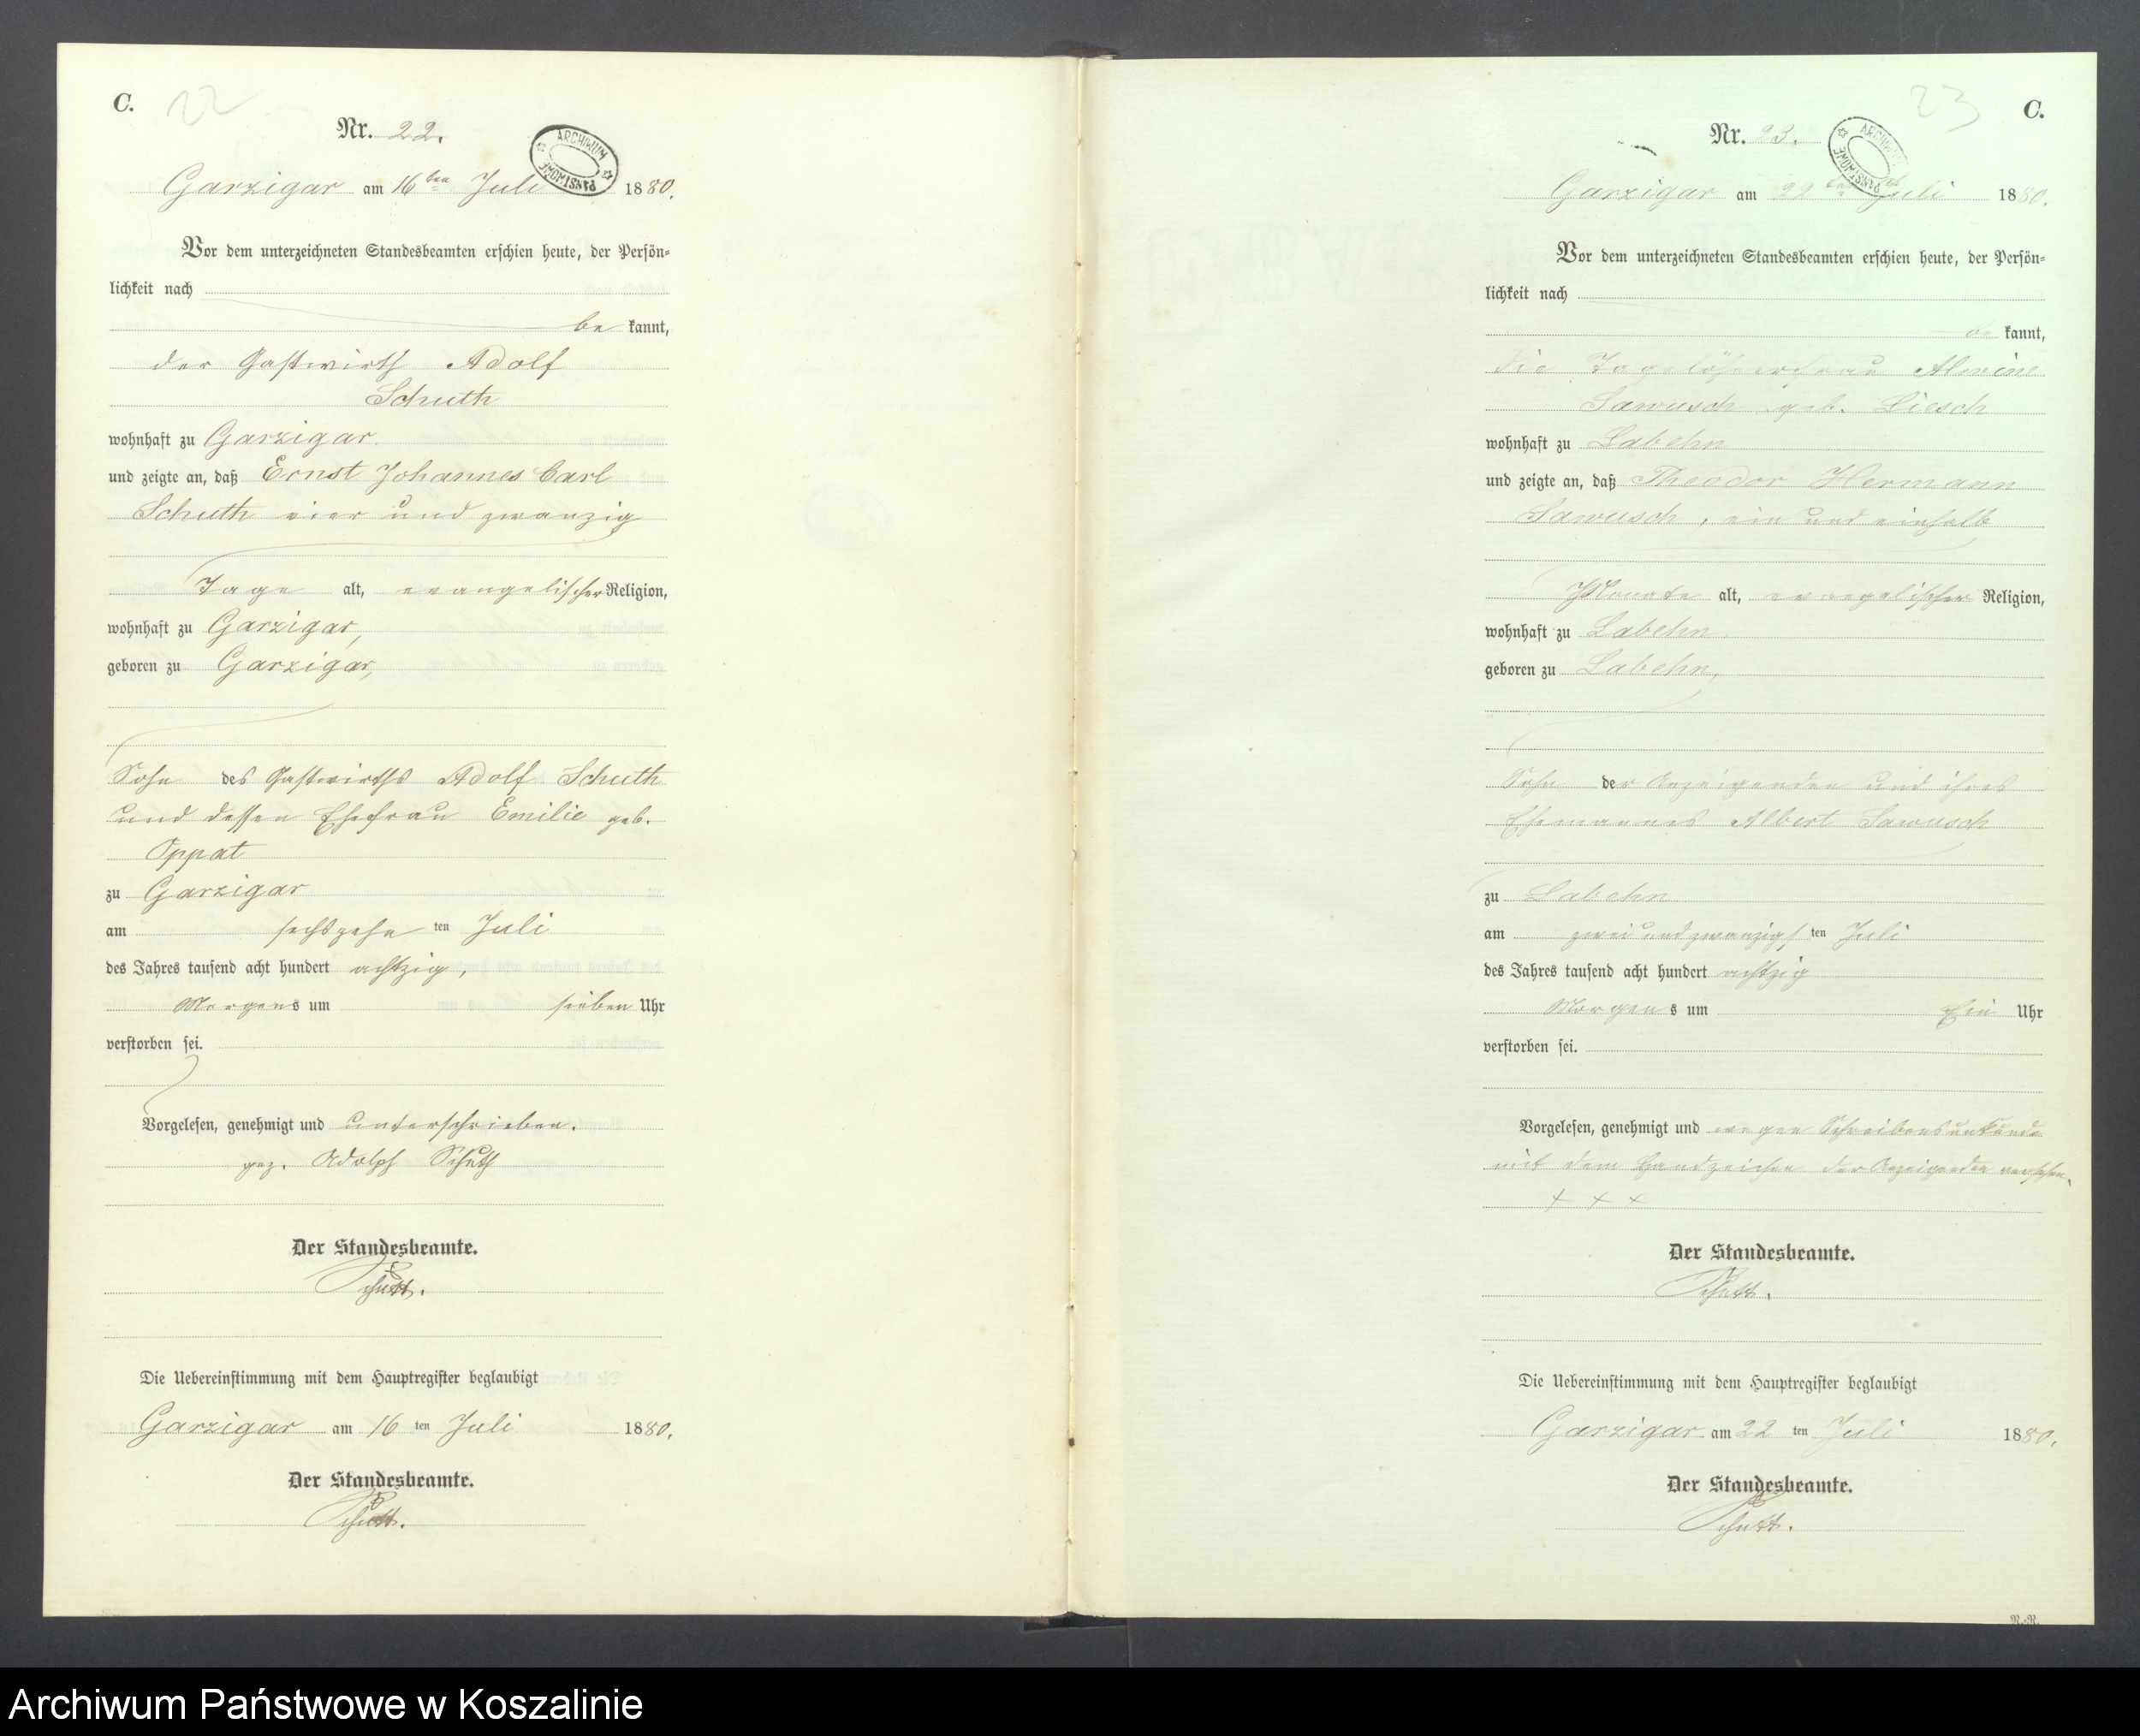 C.
22
Nr. 22.
ARCHIWUM PAŃSTWOWE
Garzigar am 16ten Juli 1880.
Vor dem unterzeichneten Standesbeamten erschien heute, der Persön-
lichkeit nach
be kannt,
der Gastwirth Adolf
Schuth
wohnhaft zu Garzigar
und zeigte an, daß Ernst Johannes Carl
Schuth vier und zwanzig
Tage alt, evangelischer Religion,
wohnhaft zu Garzigar,
geboren zu Garzigar,
Sohn des Gastwirths Adolf Schuth
und dessen Ehefrau Emilie geb.
Oppat
zu Garzigar
am sechszehn ten Juli
des Jahres tausend acht hundert achtzig,
Morgens um sieben Uhr
verstorben sei.
Vorgelesen, genehmigt und unterschrieben.
gez. Adolph Schuth
Der Standesbeamte.
Die Uebereinstimmung mit dem Hauptregister beglaubigt
Garzigar am 16 ten Juli 1880.
Der Standesbeamte.
23
C.
Nr. 23.
ARCHIWUM PAŃSTWOWE
Garzigar am 22ten Juli 1880.
Vor dem unterzeichneten Standesbeamten erschien heute, der Persön-
lichkeit nach
be kannt,
die Tagelöhnerfrau Alwine
Sawusch geb. Liesch
wohnhaft zu Labehn
und zeigte an, daß Theodor Hermann
Sawusch, ein und einhalb
Monate alt, evangelischer Religion,
wohnhaft zu Labehn,
geboren zu Labehn,
Sohn der Anzeigenden und ihres
Ehemannes Albert Sawusch
zu Labehn
am zwei und zwanzigs ten Juli
des Jahres tausend acht hundert achtzig
Morgens um Ein Uhr
verstorben sei.
Vorgelesen, genehmigt und wegen Schreibensunkunde
mit dem Handzeichen der Anzeigenden versehen.
+ + +
Der Standesbeamte.
Die Uebereinstimmung mit dem Hauptregister beglaubigt
Garzigar am 22 ten Juli 1880.
Der Standesbeamte.
Archiwum Państwowe w Koszalinie